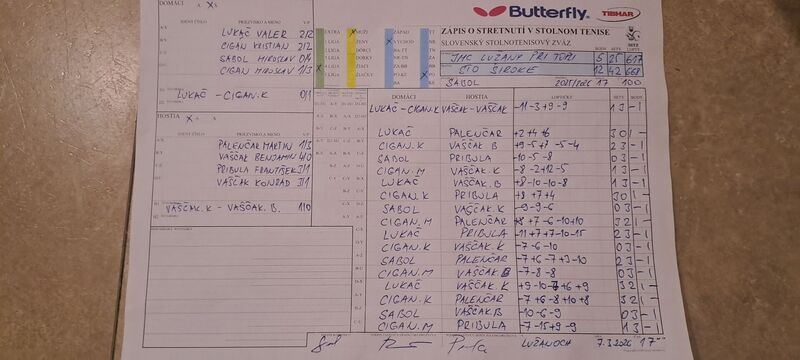 DOMÁCI A X
Butterfly
TIBHAR
ZÁPIS O STRETNUTÍ V STOLNOM TENISE
SLOVENSKÝ STOLNOTENISOVÝ ZVÄZ
BODY SETY LOPT.
JMC LUŽANY PRI TOPLI 5 25 617
STO ŠIROKÉ 12 42 668
SABOL 2025/2026 17 100
IDENT. ČÍSLO PRIEZVISKO A MENO V/P
LUKAČ VALER 2/2
CIGAN KRISTIAN 2/2
SABOL MIROSLAV 0/4
CIGAN MIROSLAV 1/3
LUKAČ - CIGAN.K 0/1
HOSTIA
IDENT. ČÍSLO PRIEZVISKO A MENO V/P
PALENČAR MARTIN 1/3
VAŠČAK BENJAMIN 4/0
PRIBULA FRANTIŠEK 3/1
VAŠČAK KONRAD 3/1
VAŠČAK.K - VAŠČAK.B. 1/0
EXTRA MUŽI ZÁPAD TT
I LIGA ŽENY VÝCHOD NR
DOMÁCI HOSTIA LOPTIČKY SETY
LUKAČ - CIGAN.K VAŠČAK - VAŠČAK -11 -3 +9 -9 1 3 -1
LUKAČ PALENČAR +2 +4 +6 3 0 1-
CIGAN.K VAŠČAK.B +9 -5 +7 -5 -4 2 3 -1
SABOL PRIBULA -10 -5 -8 0 3 -1
CIGAN.M VAŠČAK.K -8 -2 +12 -5 1 3 -1
LUKAČ VAŠČAK.B +8 -10 -10 -8 1 3 -1
CIGAN.K PRIBULA +8 +7 +4 3 0 1-
SABOL VAŠČAK.K -9 -9 -6 0 3 -1
CIGAN.M PALENČAR +8 +7 -6 -10 +10 3 2 1-
LUKAČ PRIBULA -11 +7 +7 -10 -15 2 3 -1
CIGAN.K VAŠČAK.K -7 -6 -10 0 3 -1
SABOL PALENČAR -7 +6 -7 +3 -10 2 3 -1
CIGAN.M VAŠČAK.B -7 -8 -8 0 3 -1
LUKAČ VAŠČAK.K +9 -10 -7 +6 +9 3 2 1-
CIGAN.K PALENČAR -7 +6 -8 +10 +8 3 2 1-
SABOL VAŠČAK.B -10 -6 -9 0 3 -1
CIGAN.M PRIBULA -7 -15 +9 -9 1 3 -1
LUŽANOCH 7.3.2026 17